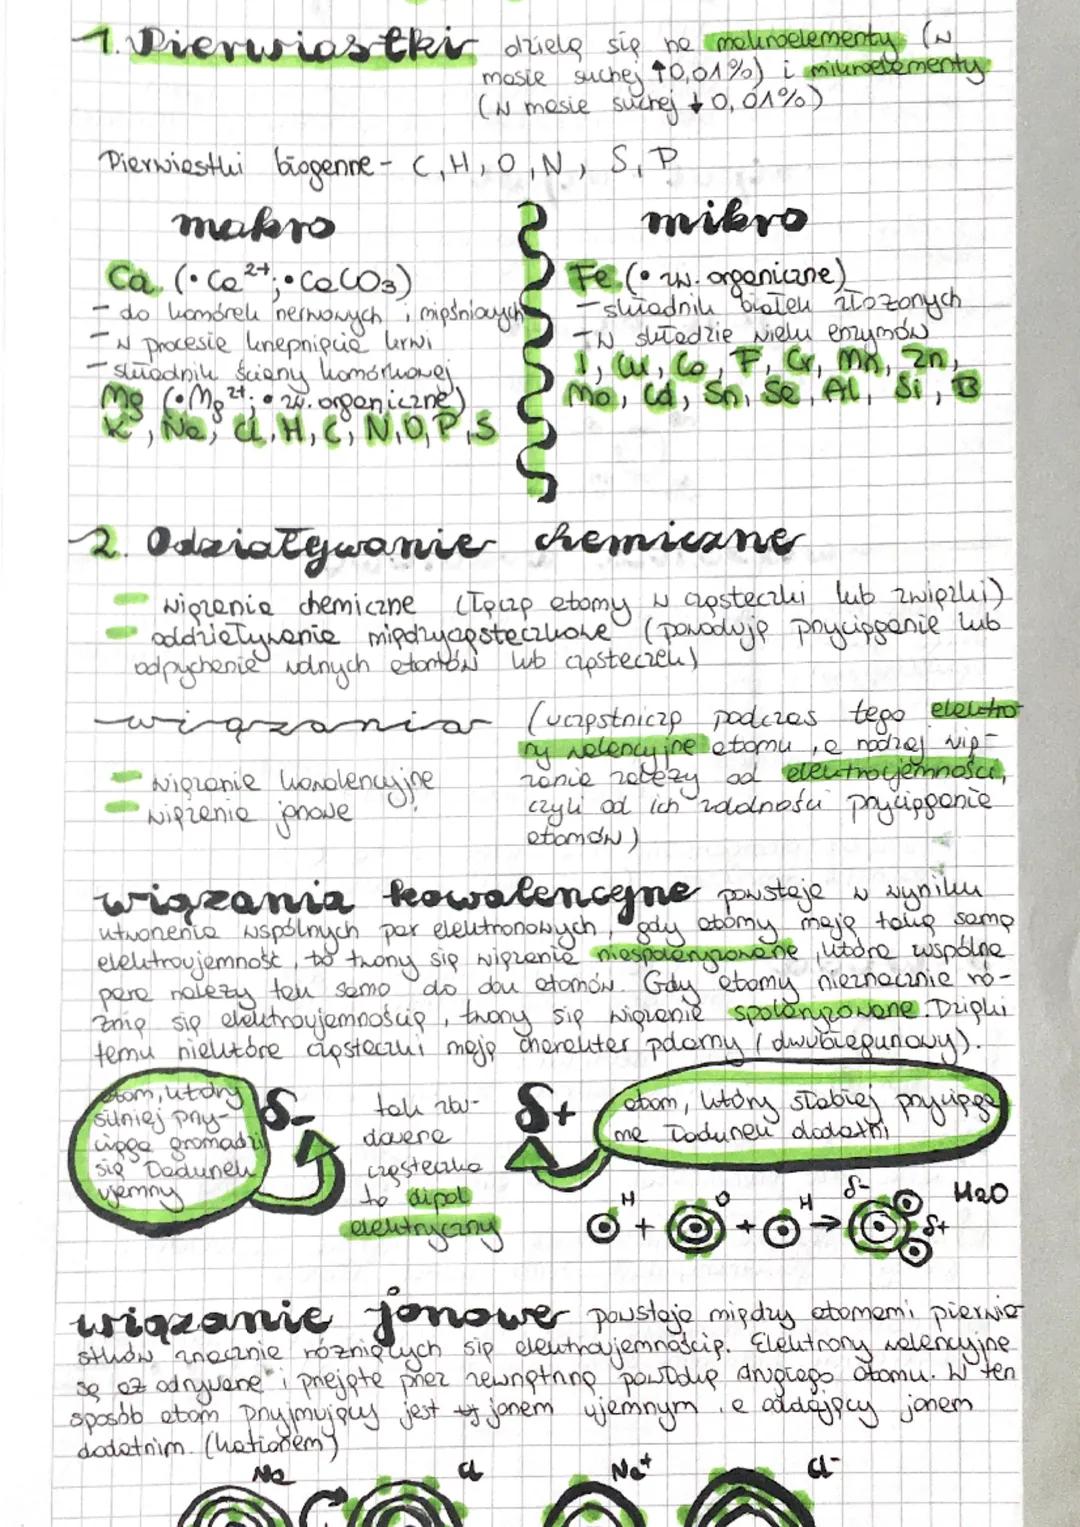 1. Pierwiastki dzielą się na makroelementy (w
masie suchej ↑0,01%) i mikroelementy
(w masie suchej ↓0,01%)
Pierwiastki biogenne - C, H, O, N, S, P
makro
Ca (•Ca²⁺; •CaCO₃)
- do komórek nerwowych i mięśniowych
- w procesie krzepnięcia krwi
- składnik ściany komórkowej
Mg (•Mg²⁺; •zw. organiczne)
K, Na, Cl, H, C, N, O, P, S
mikro
Fe (• zw. organiczne)
- składnik białek złożonych
- w składzie wielu enzymów
I, Cu, Co, F, Cr, Mn, Zn,
Mo, Cd, Sn, Se, Al, Si, B
2. Odziaływanie chemiczne
- wiązania chemiczne (łączą atomy w cząsteczki lub związki)
- oddziaływania międzycząsteczkowe (powodują przyciąganie lub
odpychanie wolnych atomów lub cząsteczek)
wiązania
- wiązanie kowalencyjne
- wiązanie jonowe
(uczęstniczą podczas tego elektro
ny walencyjne atomu, a rodzaj wią-
zania zależy od elektroujemności,
czyli od ich zdolności przyciągania
atomów)
wiązania kowalencyjne powstaje w wyniku
utworzenia wspólnych par elektronowych, gdy atomy mają taką samą
elektroujemność, to tworzy się wiązanie niespolaryzowane, które wspólna
para należy tak samo do dwu atomów. Gdy atomy nieznacznie ró-
żnią się elektroujemnością, tworzy się wiązanie spolaryzowane. Dzięki
temu niektóre cząsteczki mają charakter polarny (dwubiegunowy).
atom, który
silniej przy-
ciąga gromadzi
się ładunek
ujemny
δ-
tak zbu-
dowana
cząsteczka
to dipol
elektryczny
δ+
atom, który słabiej przyciąga
ma ładunek dodatni
H + O + H → δ- δ+ H2O
wiązanie jonowe powstaje między atomami pierwia
stków znacznie różniących się elektroujemnością. Elektrony walencyjne
są aż "odrywane" i przejęte przez zewnętrzną powłokę drugiego atomu. W ten
sposób atom przyjmujący jest jonem ujemnym, a oddający jonem
dodatnim. (kationem)
Na Cl Na⁺ Cl⁻